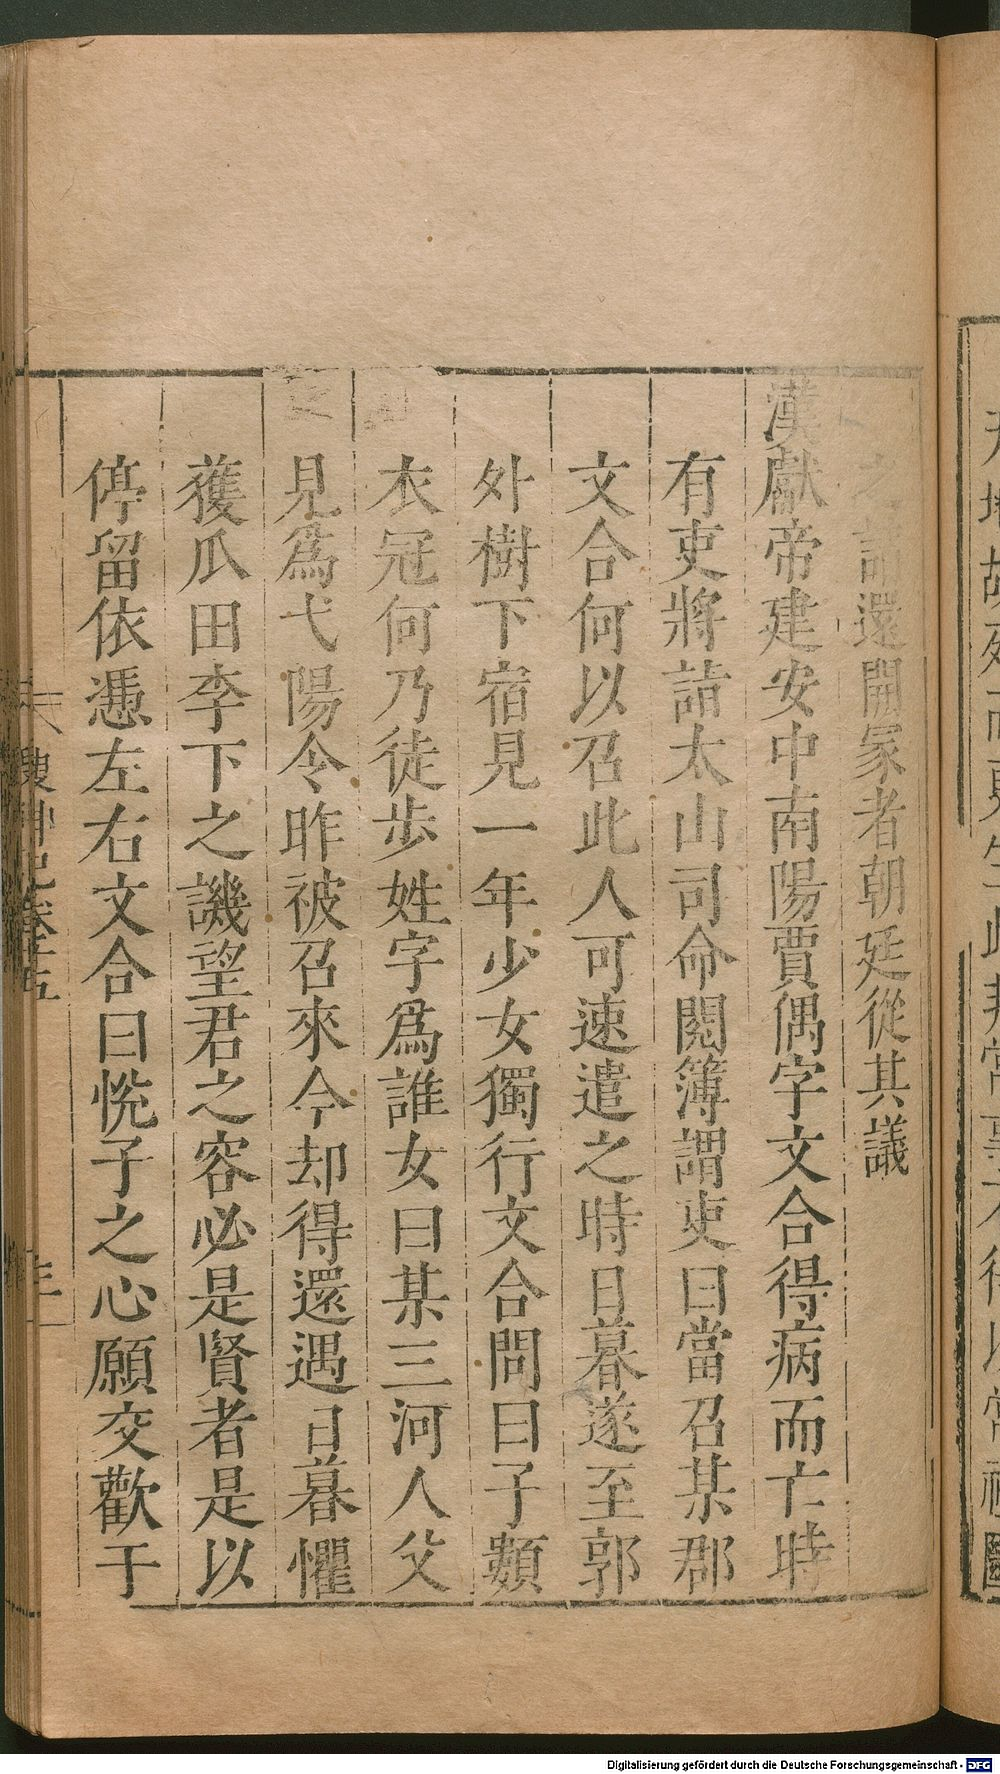 之請還開冢者朝廷從其議
漢獻帝建安中南陽賈偶字文合得病而亡時
有吏將詣太山司命閱簿謂吏曰當召某郡
文合何以召此人可速遣之時日暮遂至郭
外樹下宿見一年少女獨行文合問曰子類
衣冠何乃徒步姓字爲誰女曰某三河人父
見爲弋陽令昨被召來今却得還遇日暮懼
獲瓜田李下之譏望君之容必是賢者是以
停留依憑左右文合曰悅子之心願交歡于
搜神記卷十五
Digitalisierung gefördert durch die Deutsche Forschungsgemeinschaft - DFG